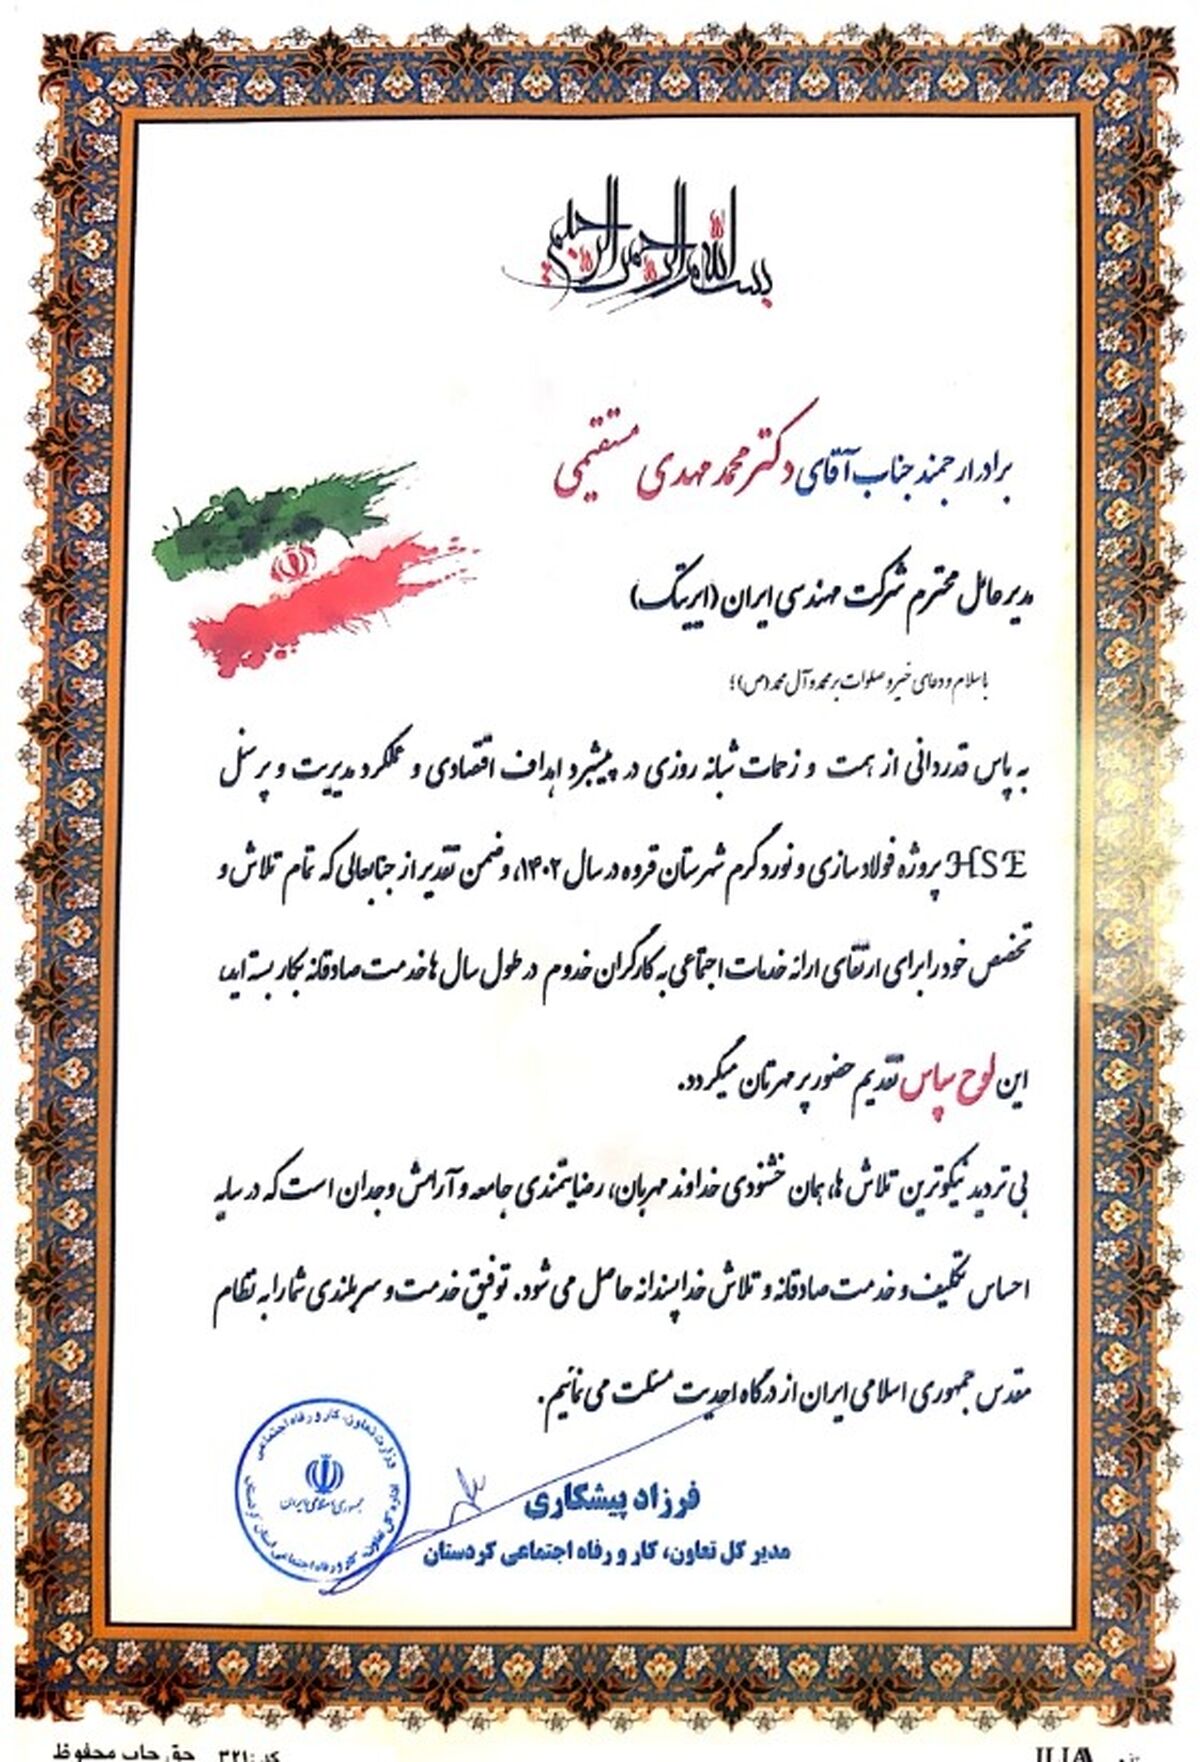 بسم الله الرحمن الرحیم
برادر ارجمند جناب آقای دکتر محمد مهدی مستقیمی
مدیرعامل محترم شرکت مهندسی ایران (ایریتک)
با سلام و دعای خیر و صلوات بر محمد و آل محمد (ص)؛
به پاس قدردانی از همت و زحمات شبانه روزی در پیشبرد اهداف اقتصادی و عملکرد مدیریت و پرسنل
HSE پروژه فولادسازی و نورد گرم شهرستان قروه در سال ۱۴۰۲، و ضمن تقدیر از جنابعالی که تمام تلاش و
تخصص خود را برای ارتقای ارائه خدمات اجتماعی به کارگران خدوم در طول سال ها خدمت صادقانه بکار بسته اید،
این لوح سپاس تقدیم حضور پر مهرتان میگردد.
بی تردید نیکوترین تلاش ها، همان خشنودی خداوند مهربان، رضایتمندی جامعه و آرامش وجدان است که در سایه
احساس تکلیف و خدمت صادقانه و تلاش خداپسندانه حاصل می شود. توفیق خدمت و سربلندی شما را به نظام
مقدس جمهوری اسلامی ایران از درگاه احدیت مسئلت می نمائیم.
فرزاد پیشکاری
مدیر کل تعاون، کار و رفاه اجتماعی کردستان
وزارت تعاون، کار و رفاه اجتماعی
جمهوری اسلامی ایران
اداره کل تعاون، کار و رفاه اجتماعی استان کردستان
کد: ۳۲۱ حق چاپ محفوظ